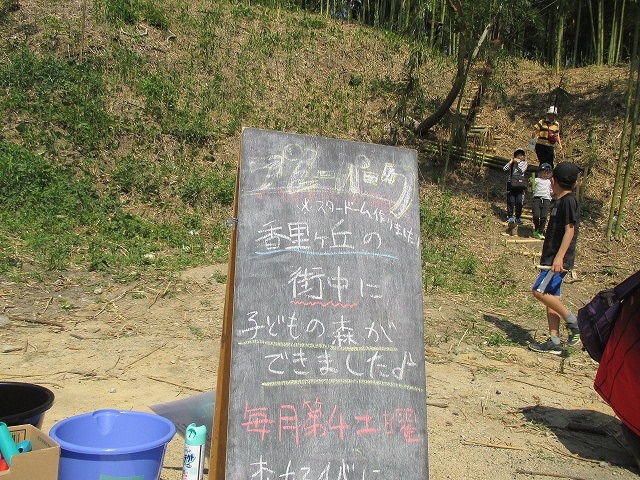 プレーパーク
※スタードーム作りました！
香里ヶ丘の
街中に
子どもの森が
できました♪
毎月第4土曜